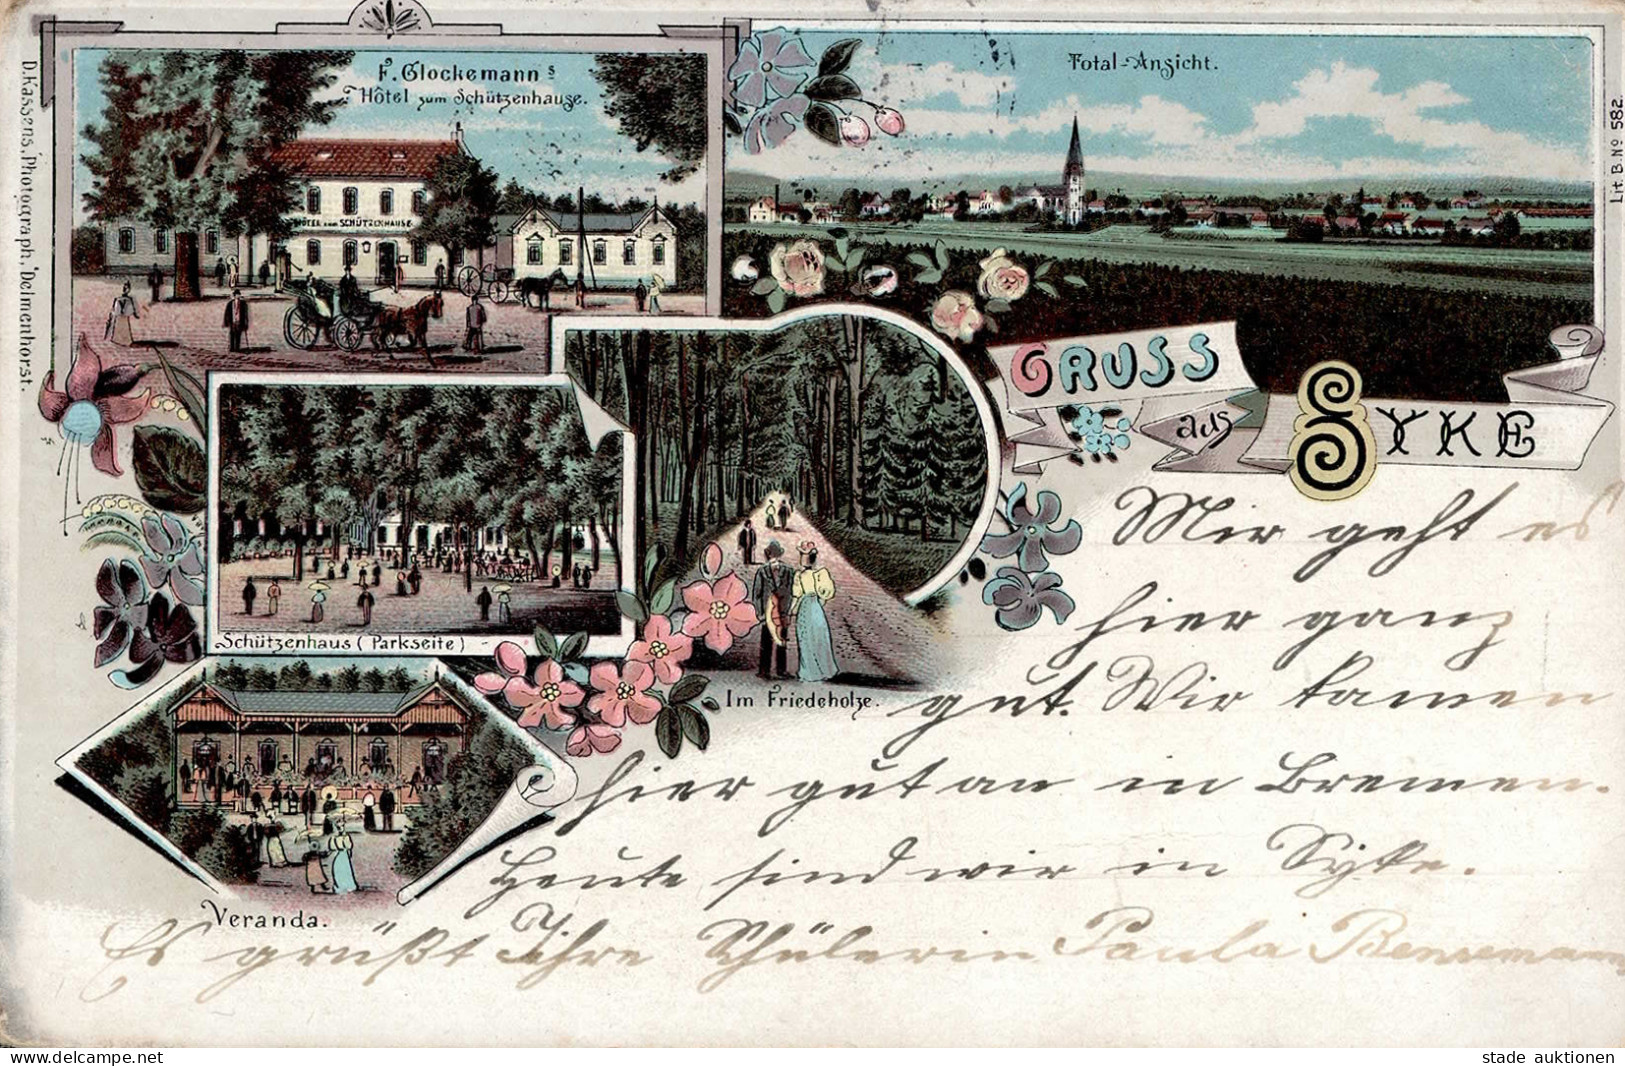 F. Glockemann's
Hôtel zum Schützenhause.
HÔTEL ZUM SCHÜTZENHAUSE
Total-Ansicht.
D. Kassens, Photograph, Delmenhorst.
Lit. B. No 582.
GRUSS
aus
SYKE
Schützenhaus (Parkseite)
Im Friedeholze.
Veranda.
Mir geht es
hier ganz
gut. Wir kamen
hier gut an in Bremen.
Heute sind wir in Syke.
Es grüßt Ihre Schülerin Paula
delcampe.net
stade auktionen